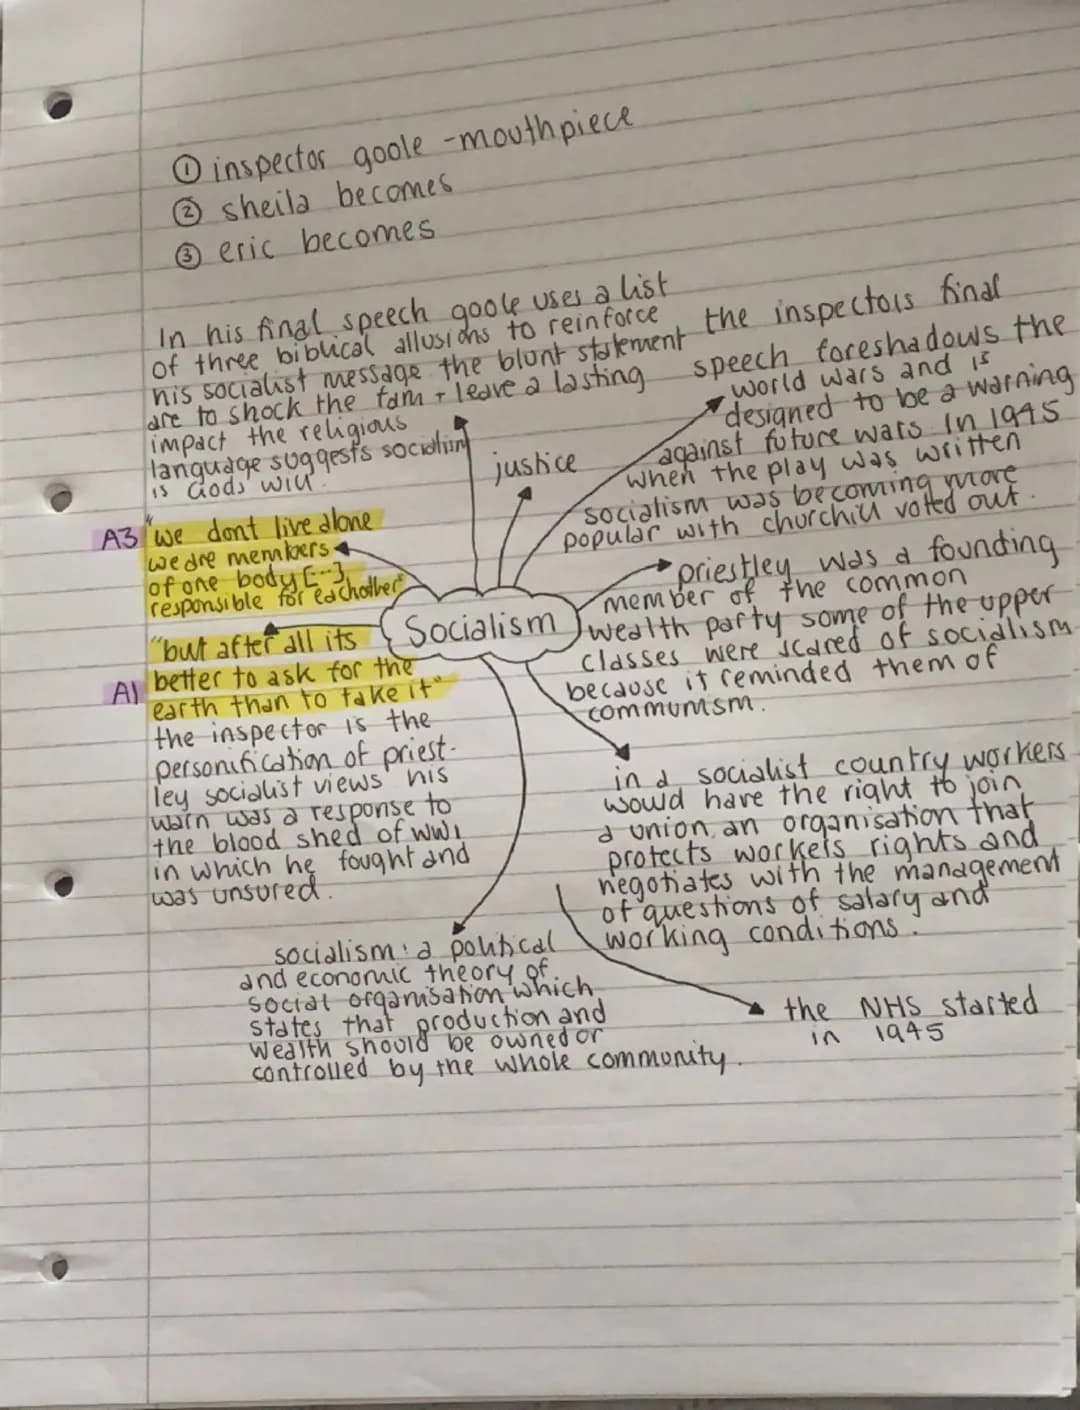 ① inspector goole - mouthpiece
② sheila becomes
③ eric becomes
In his final speech goole uses a list
of three biblical allusions to reinforce
his socialist message the blunt statement
are to shock the fam + leave a lasting
impact the religious
language suggests socialism
is Gods will.
justice
the inspectors final
speech foreshadows the
world wars and is
designed to be a warning
against future wars In 1945
when the play was written
socialism was becoming more
popular with churchill voted out.
A3 "we dont live alone
we are members
of one body [...]
responsible for eachother"
Socialism
priestley was a founding
member of the common
wealth party some of the upper
classes were scared of socialism
because it reminded them of
communism.
"but after all its
better to ask for the
A1 earth than to take it"
the inspector is the
personification of priest-
ley socialist views his
warn was a response to
the blood shed of ww1
in which he fought and
was unsured.
in a socialist country workers
would have the right to join
a union, an organisation that
protects workers rights and
negotiates with the management
of questions of salary and
working conditions.
socialism: a political
and economic theory of
social organisation which
states that production and
wealth should be owned or
controlled by the whole community.
the NHS started
in 1945